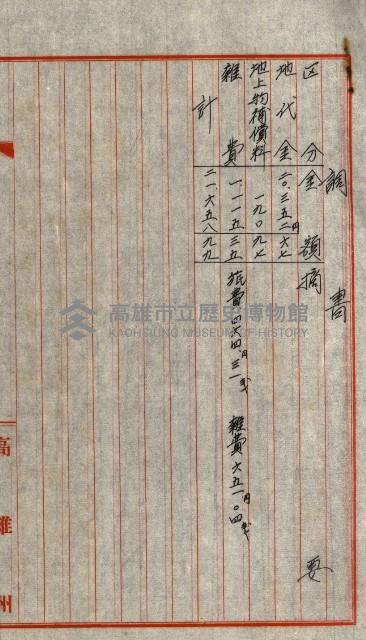 調書
区分 金額 摘要
地代金 二〇.三五二円六七
地上物補償料 一九〇九七
雜費 一.一一五三五 旅費四六四円三一戋 雜費六五一円〇四戋
計 二一.六五八九九
高雄州
高雄市立歷史博物館
KAOHSIUNG MUSEUM OF HISTORY